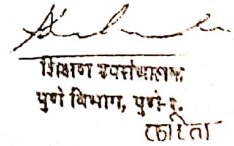 शिक्षण उपसंचालक
पुणे विभाग, पुणे-१.
करिता